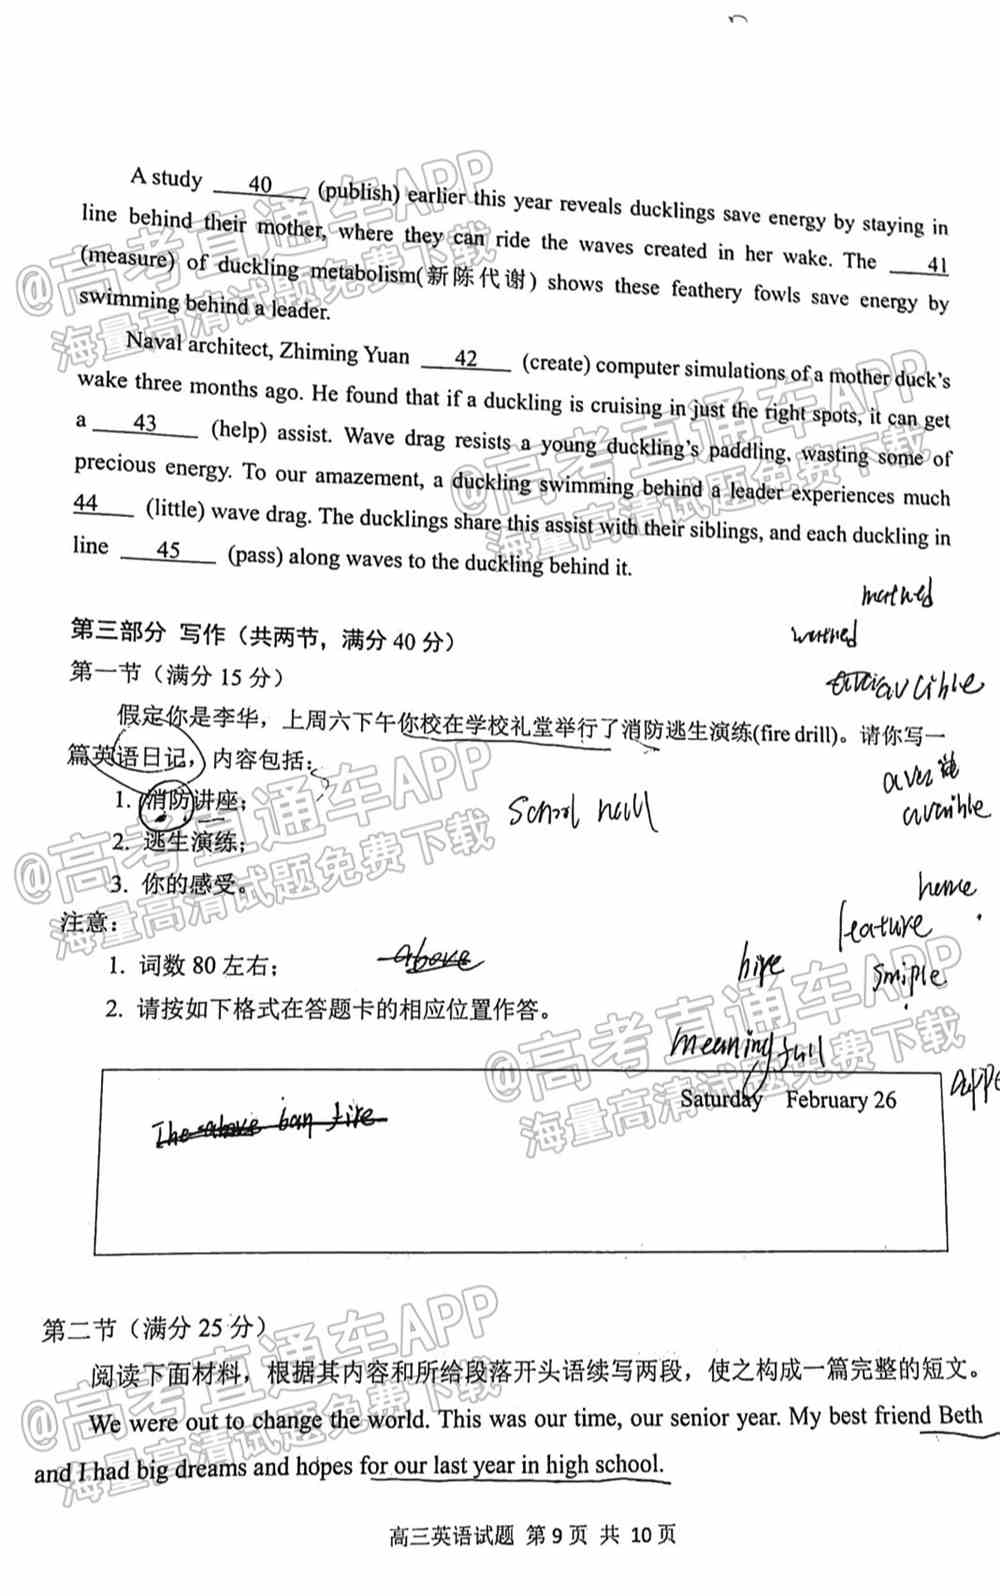 A study 40 (publish) earlier this year reveals ducklings save energy by staying in
line behind their mother, where they can ride the waves created in her wake. The 41
(measure) of duckling metabolism(新陈代谢) shows these feathery fowls save energy by
swimming behind a leader.
Naval architect, Zhiming Yuan 42 (create) computer simulations of a mother duck's
wake three months ago. He found that if a duckling is cruising in just the right spots, it can get
a 43 (help) assist. Wave drag resists a young duckling's paddling, wasting some of
precious energy. To our amazement, a duckling swimming behind a leader experiences much
44 (little) wave drag. The ducklings share this assist with their siblings, and each duckling in
line 45 (pass) along waves to the duckling behind it.
第三部分 写作（共两节，满分 40 分）
第一节（满分 15 分）
假定你是李华，上周六下午你校在学校礼堂举行了消防逃生演练(fire drill)。请你写一
篇英语日记，内容包括：
1. 消防讲座；
School hall
2. 逃生演练；
3. 你的感受。
注意：
feature
1. 词数 80 左右；
above
hire
2. 请按如下格式在答题卡的相应位置作答。
meaningfull
Saturday February 26
第二节（满分 25 分）
阅读下面材料，根据其内容和所给段落开头语续写两段，使之构成一篇完整的短文。
We were out to change the world. This was our time, our senior year. My best friend Beth
and I had big dreams and hopes for our last year in high school.
高三英语试题 第 9 页 共 10 页
@高考直通车APP
海量高清试题免费下载
@高考直通车APP
海量高清试题免费下载
@高考直通车APP
海量高清试题免费下载
@高考直通车APP
海量高清试题免费下载
@高考直通车APP
海量高清试题免费下载